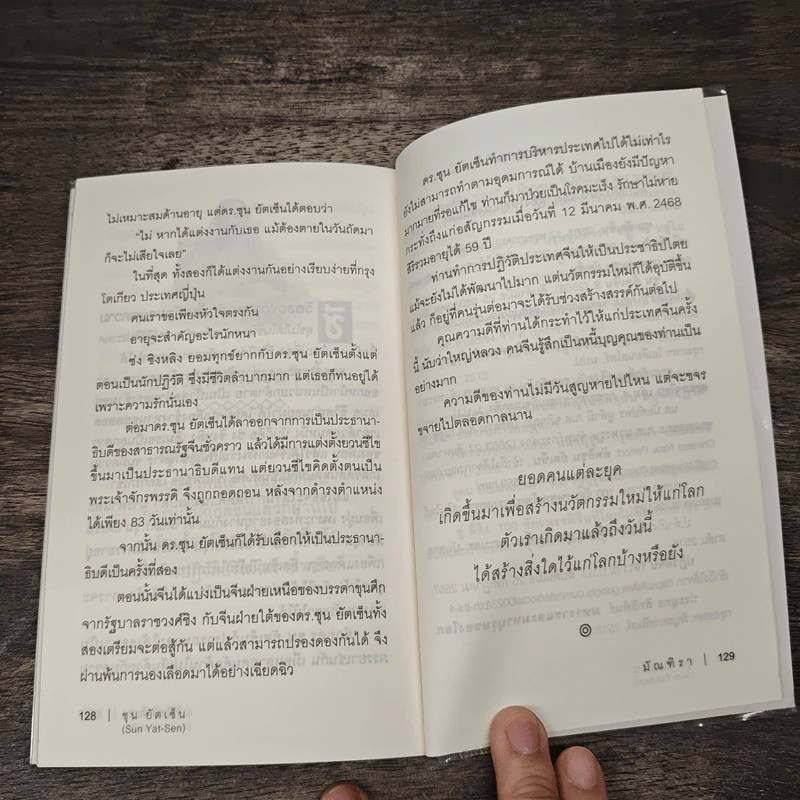 ไม่เหมาะสมด้านอายุ แต่ดร.ซุน ยัตเซ็นได้ตอบว่า
"ไม่ หากได้แต่งงานกับเธอ แม้ต้องตายในวันถัดมา
ก็จะไม่เสียใจเลย"
ในที่สุด ทั้งสองก็ได้แต่งงานกันอย่างเรียบง่ายที่กรุง
โตเกียว ประเทศญี่ปุ่น
คนเราขอเพียงหัวใจตรงกัน
อายุจะสำคัญอะไรนักหนา
ซ่ง ชิงหลิง ยอมทุกข์ยากกับดร.ซุน ยัตเซ็นตั้งแต่
ตอนเป็นนักปฏิวัติ ซึ่งมีชีวิตลำบากมาก แต่เธอก็ทนอยู่ได้
เพราะความรักนั่นเอง
ต่อมาดร.ซุน ยัตเซ็นได้ลาออกจากการเป็นประธานา-
ธิบดีของสาธารณรัฐจีนชั่วคราว แล้วได้มีการแต่งตั้งยวนซีไข
ขึ้นมาเป็นประธานาธิบดีแทน แต่ยวนซีไขคิดตั้งตนเป็น
พระเจ้าจักรพรรดิ จึงถูกถอดถอน หลังจากดำรงตำแหน่ง
ได้เพียง 83 วันเท่านั้น
จากนั้น ดร.ซุน ยัตเซ็นก็ได้รับเลือกให้เป็นประธานา-
ธิบดีเป็นครั้งที่สอง
ตอนนั้นจีนได้แบ่งเป็นจีนฝ่ายเหนือของบรรดาขุนศึก
จากรัฐบาลราชวงศ์ชิง กับจีนฝ่ายใต้ของดร.ซุน ยัตเซ็นทั้ง
สองเตรียมจะต่อสู้กัน แต่แล้วสามารถปรองดองกันได้ จึง
ผ่านพ้นการนองเลือดมาได้อย่างเฉียดฉิว
128 | ซุน ยัตเซ็น
(Sun Yat-Sen)
ดร.ซุน ยัตเซ็นทำการบริหารประเทศไปได้ไม่เท่าไร
ยังไม่สามารถทำตามอุดมการณ์ได้ บ้านเมืองยังมีปัญหา
มากมายที่รอแก้ไข ท่านก็มาป่วยเป็นโรคมะเร็ง รักษาไม่หาย
กระทั่งถึงแก่อสัญกรรมเมื่อวันที่ 12 มีนาคม พ.ศ. 2468
สิริรวมอายุได้ 59 ปี
ท่านทำการปฏิวัติประเทศจีนให้เป็นประชาธิปไตย
แม้จะยังไม่ได้พัฒนาไปมาก แต่นวัตกรรมใหม่ก็ได้อุบัติขึ้น
แล้ว ก็อยู่ที่คนรุ่นต่อมาจะได้รับช่วงสร้างสรรค์กันต่อไป
คุณความดีที่ท่านได้กระทำไว้ให้แก่ประเทศจีนครั้ง
นี้ นับว่าใหญ่หลวง คนจีนรู้สึกเป็นหนี้บุญคุณของท่านเป็น
อย่างมาก
ความดีของท่านไม่มีวันสูญหายไปไหน แต่จะขจร
ขจายไปตลอดกาลนาน
ยอดคนแต่ละยุค
เกิดขึ้นมาเพื่อสร้างนวัตกรรมใหม่ให้แก่โลก
ตัวเราเกิดมาแล้วถึงวันนี้
ได้สร้างสิ่งใดไว้แก่โลกบ้างหรือยัง
มัณฑิรา | 129